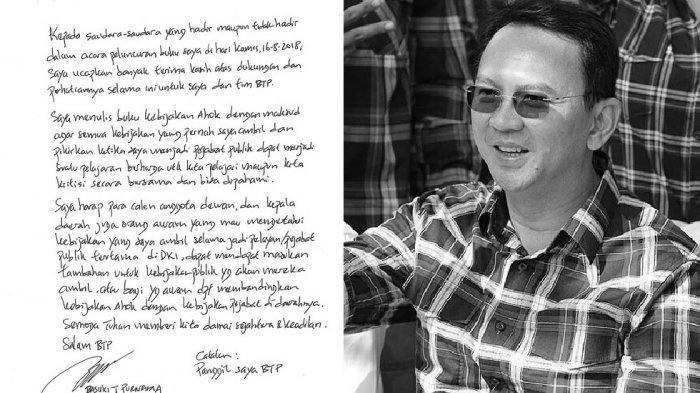 Kepada saudara-saudara yang hadir maupun tidak hadir
dalam acara peluncuran buku saya di hari Kamis, 16-8-2018,
Saya ucapkan banyak terima kasih atas dukungan dan
perhatiannya selama ini untuk saya dan tim BTP.
Saya menulis buku kebijakan Ahok dengan maksud
agar semua kebijakan yang pernah saya ambil dan
pikirkan ketika saya menjadi pejabat publik dapat menjadi
suatu pelajaran berharga utk kita pelajari maupun kita
kritisi secara bersama dan bisa dipahami.
Saya harap para calon anggota dewan, dan kepala
daerah juga orang awam yang mau mengetahui
kebijakan yang saya ambil selama jadi pelayan/pejabat
publik terutama di DKI, dapat mendapat masukan
tambahan untuk kebijakan publik yg akan mereka
ambil. atau bagi yg awam dpt membandingkan
kebijakan Ahok dengan kebijakan pejabat di daerahnya.
Semoga Tuhan memberi kita damai sejahtera & keadilan.
Salam BTP
Catatan:
Panggil saya BTP
BASUKI T PURNAMA